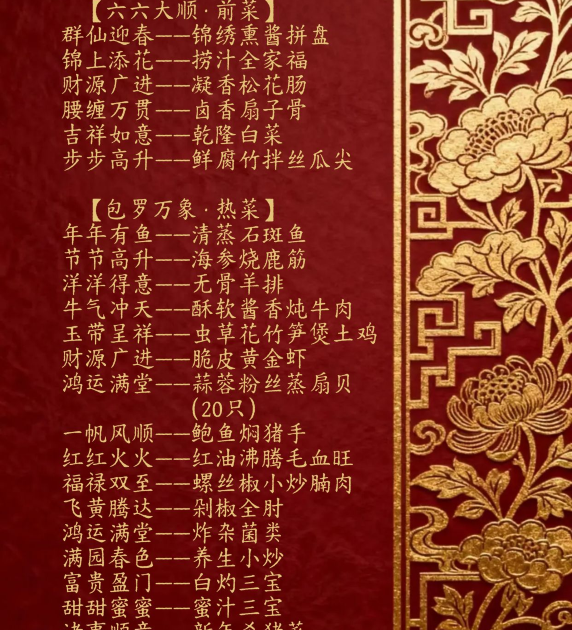 【六六大顺·前菜】
群仙迎春——锦绣熏酱拼盘
锦上添花——捞汁全家福
财源广进——凝香松花肠
腰缠万贯——卤香扇子骨
吉祥如意——乾隆白菜
步步高升——鲜腐竹拌丝瓜尖
【包罗万象·热菜】
年年有鱼——清蒸石斑鱼
节节高升——海参烧鹿筋
洋洋得意——无骨羊排
牛气冲天——酥软酱香炖牛肉
玉带呈祥——虫草花竹笋煲土鸡
财源广进——脆皮黄金虾
鸿运满堂——蒜蓉粉丝蒸扇贝
(20只)
一帆风顺——鲍鱼焖猪手
红红火火——红油沸腾毛血旺
福禄双至——螺丝椒小炒腩肉
飞黄腾达——剁椒全肘
鸿运满堂——炸杂菌类
满园春色——养生小炒
富贵盈门——白灼三宝
甜甜蜜蜜——蜜汁三宝